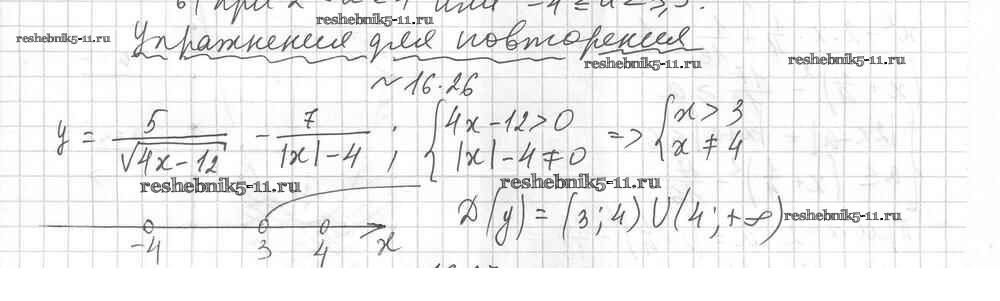 б) при 2 или -4 ≤ a
reshebnik5-11.ru
reshebnik5-11.ru
Упражнения для повторения
reshebnik5-11.ru
reshebnik5-11.ru
~ 16.26
y = 5/√(4x-12) - 7/(|x|-4) ; { 4x-12>0 |x|-4≠0 => { x>3 x≠4
reshebnik5-11.ru
reshebnik5-11.ru
-4 3 4 x
D(y) = (3;4) U (4;+∞)
reshebnik5-11.ru